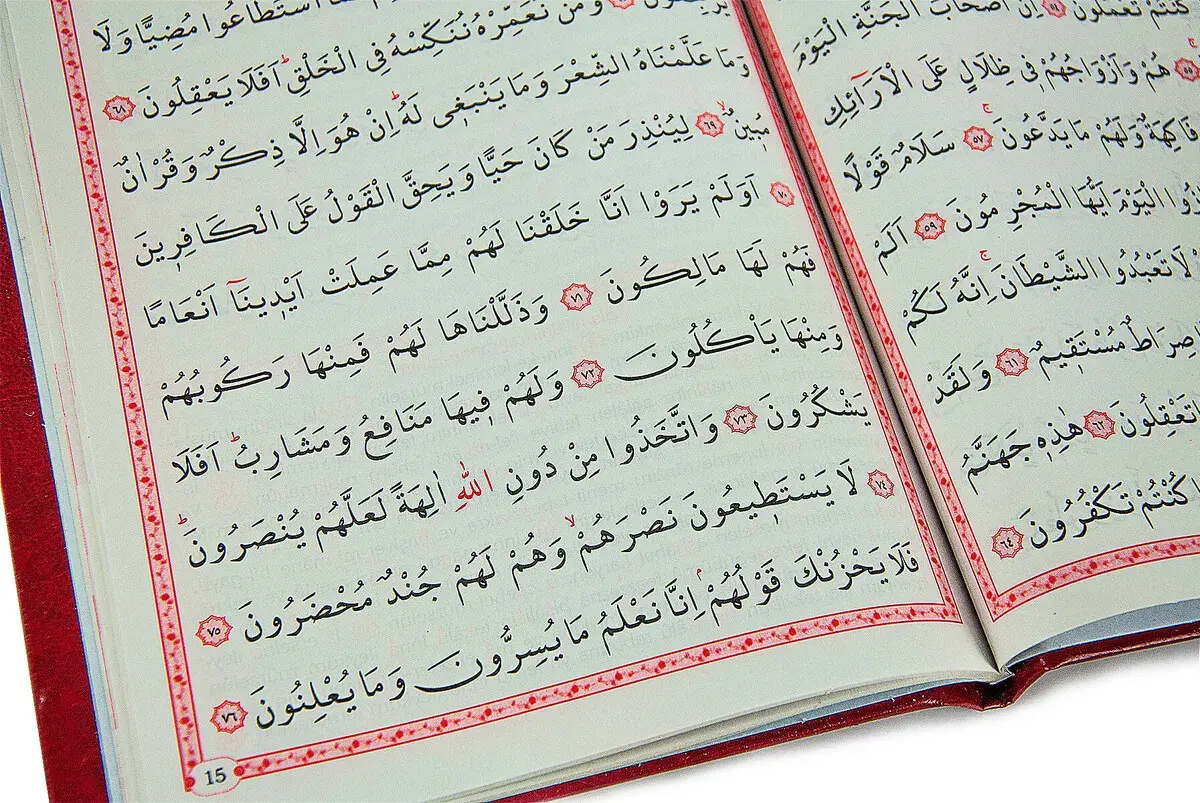 كُنْتُمْ تَعْمَلُونَ ﴿٥٤﴾ اِنَّ اَصْحَابَ الْجَنَّةِ الْيَوْمَ
﴿٥٥﴾ هُمْ وَاَزْوَاجُهُمْ فِى ظِلَالٍ عَلَى الْاَرَٓائِكِ
فَاكِهَةٌ وَلَهُمْ مَا يَدَّعُونَ ﴿٥٧﴾ سَلَامٌ قَوْلًا
الْيَوْمَ اَيُّهَا الْمُجْرِمُونَ ﴿٥٩﴾ اَلَمْ
لَا تَعْبُدُوا الشَّيْطَانَ اِنَّهُ لَكُمْ
صِرَاطٌ مُسْتَقِيمٌ ﴿٦١﴾ وَلَقَدْ
تَعْقِلُونَ ﴿٦٢﴾ هٰذِهِ جَهَنَّمُ
كُنْتُمْ تَكْفُرُونَ ﴿٦٤﴾
اسْتَطَاعُوا مُضِيًّا وَلَا
وَمَنْ نُعَمِّرْهُ نُنَكِّسْهُ فِى الْخَلْقِ اَفَلَا يَعْقِلُونَ ﴿٦٨﴾
وَمَا عَلَّمْنَاهُ الشِّعْرَ وَمَا يَنْبَغِى لَهُ اِنْ هُوَ اِلَّا ذِكْرٌ وَقُرْاٰنٌ
مُبِينٌ ﴿٦٩﴾ لِيُنْذِرَ مَنْ كَانَ حَيًّا وَيَحِقَّ الْقَوْلُ عَلَى الْكَافِرِينَ
﴿٧٠﴾ اَوَلَمْ يَرَوْا اَنَّا خَلَقْنَا لَهُمْ مِمَّا عَمِلَتْ اَيْدِينَٓا اَنْعَامًا
فَهُمْ لَهَا مَالِكُونَ ﴿٧١﴾ وَذَلَّلْنَاهَا لَهُمْ فَمِنْهَا رَكُوبُهُمْ
وَمِنْهَا يَاْكُلُونَ ﴿٧٢﴾ وَلَهُمْ فِيهَا مَنَافِعُ وَمَشَارِبُ اَفَلَا
يَشْكُرُونَ ﴿٧٣﴾ وَاتَّخَذُوا مِنْ دُونِ اللّٰهِ اٰلِهَةً لَعَلَّهُمْ يُنْصَرُونَ
﴿٧٤﴾ لَا يَسْتَطِيعُونَ نَصْرَهُمْ وَهُمْ لَهُمْ جُنْدٌ مُحْضَرُونَ ﴿٧٥﴾
فَلَا يَحْزُنْكَ قَوْلُهُمْ اِنَّا نَعْلَمُ مَا يُسِرُّونَ وَمَا يُعْلِنُونَ ﴿٧٦﴾
15